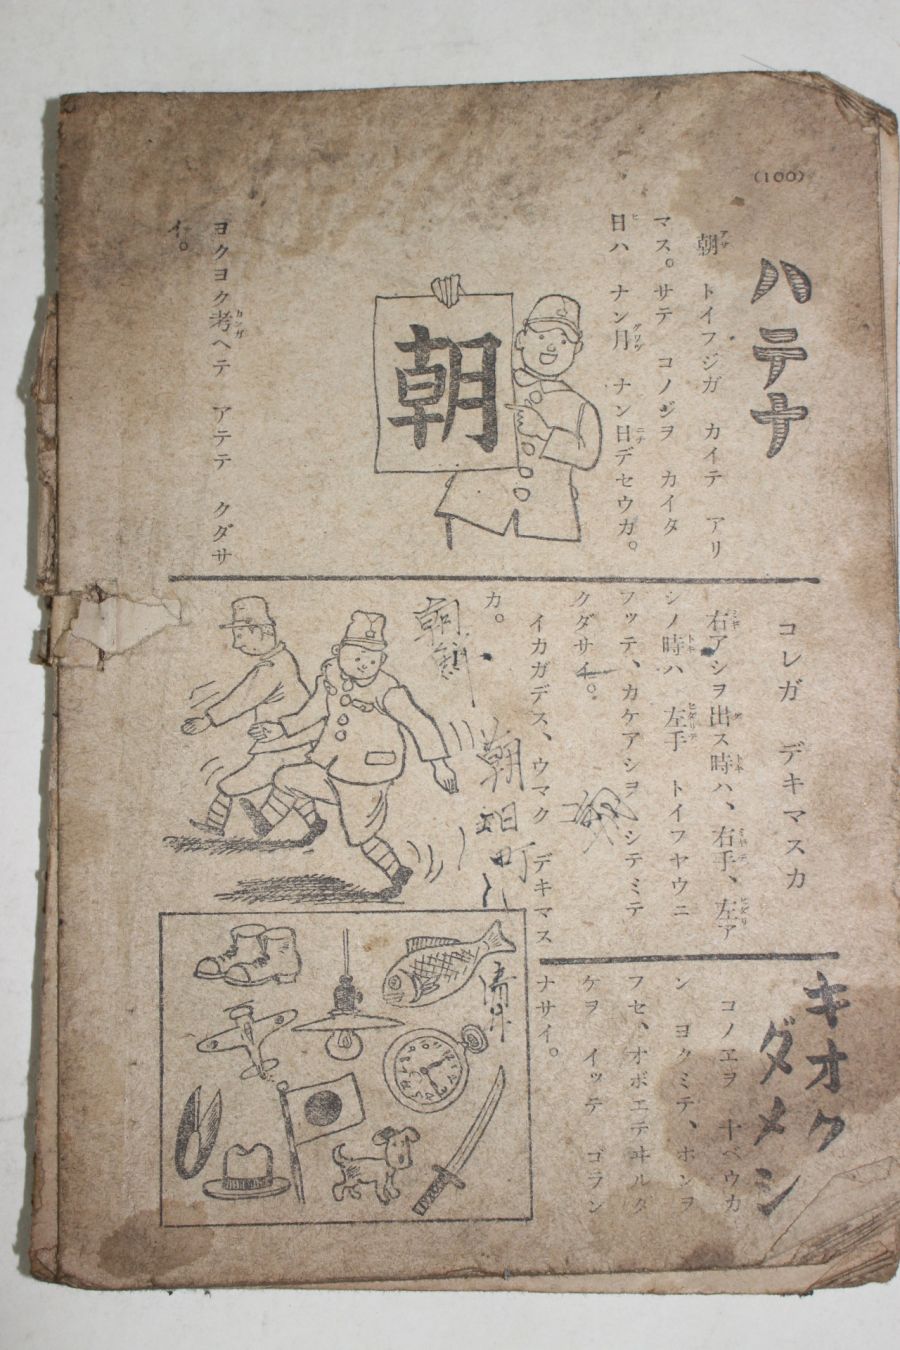 (100)
ハテナ
朝トイフジガ カイテ アリ
マス。サテ コノジヲ カイタ
日ハ ナン月 ナン日デセウカ。
朝
ヨクヨク考ヘテ アテテ クダサ
イ。
コレガ デキマスカ
右アシヲ出ス時ハ、右手、左ア
シノ時ハ 左手 トイフヤウニ
フッテ、カケアシヲ シテミテ
クダサイ。
イカガデス、ウマク デキマス
カ。
朝
朝日町
キオク
ダメシ
コノエヲ 十ベウカ
ン ヨクミテ、ホンヲ
フセ、オボエテヰルダ
ケヲ イッテ ゴラン
ナサイ。